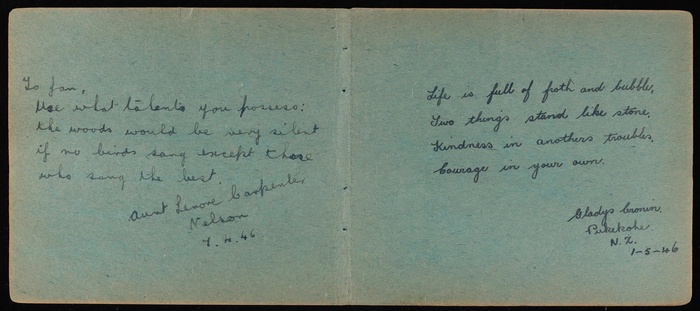 To Jan,
Use what talents you possess:
the woods would be very silent
if no birds sang except those
who sang the best.
Aunt Lenore Carpenter
Nelson
7.4.46
Life is full of froth and bubble,
Two things stand like stone,
Kindness in anothers troubles,
Courage in your own.
Gladys Cronin.
Pukekohe
N.Z.
1-5-46